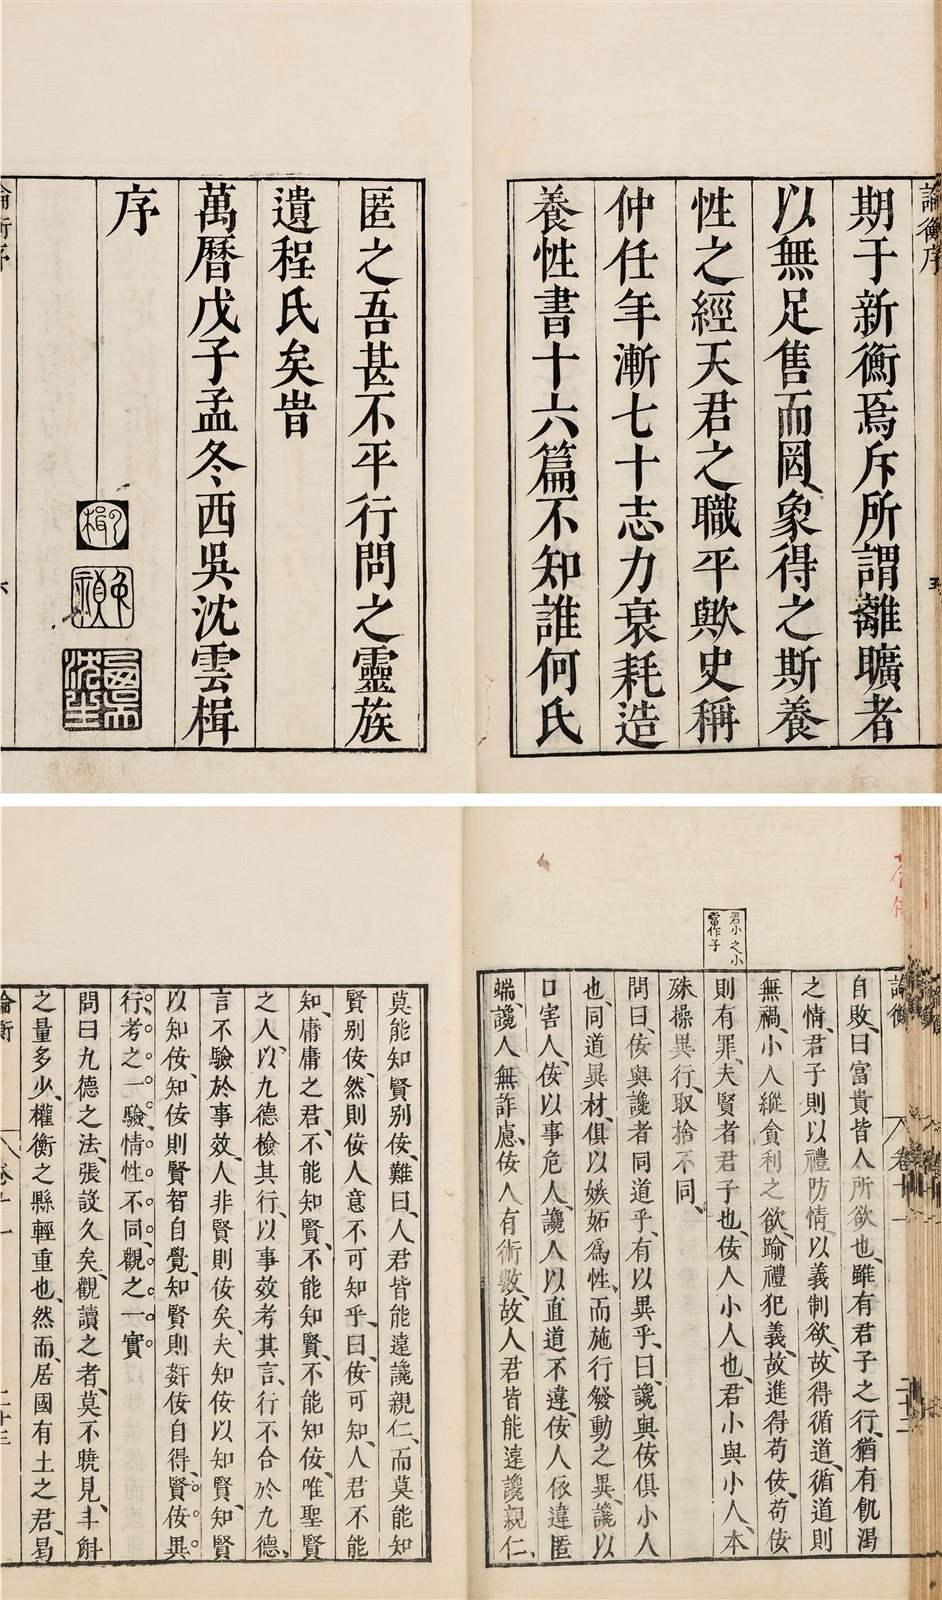 論衡序
五
期于新衡焉斥所謂離曠者
以無足售而罔象得之斯養
性之經天君之職平歟史稱
仲任年漸七十志力衰耗造
養性書十六篇不知誰何氏
匿之吾甚不平行問之靈族
遺程氏矣旹
萬曆戊子孟冬西吳沈雲楫
序
論衡序
六
論衡
卷十一
二十二
君小之小
當作子
自敗曰富貴皆人所欲也雖有君子之行猶有飢渴
之情君子則以禮防情以義制欲故得循道循道則
無禍小人縱貪利之欲踰禮犯義故進得苟佞苟佞
則有罪夫賢者君子也佞人小人也君小與小人本
殊操異行取捨不同
問曰佞與讒者同道乎有以異乎曰讒與佞俱小人
也同道異材俱以嫉妬爲性而施行發動之異讒以
口害人佞以事危人讒人以直道不違佞人依違匿
端讒人無詐慮佞人有術數故人君皆能遠讒親仁
莫能知賢别佞難曰人君皆能遠讒親仁而莫能知
賢别佞然則佞人意不可知乎曰佞可知人君不能
知庸庸之君不能知賢不能知賢不能知佞唯聖賢
之人以九德檢其行以事效考其言行不合於九德
言不驗於事效人非賢則佞矣夫知佞以知賢知賢
以知佞知佞則賢智自覺知賢則姧佞自得賢佞異
行考之一驗情性不同觀之一實
問曰九德之法張設久矣觀讀之者莫不曉見斗斛
之量多少權衡之縣輕重也然而居國有土之君曷
論衡
卷十一
二十三